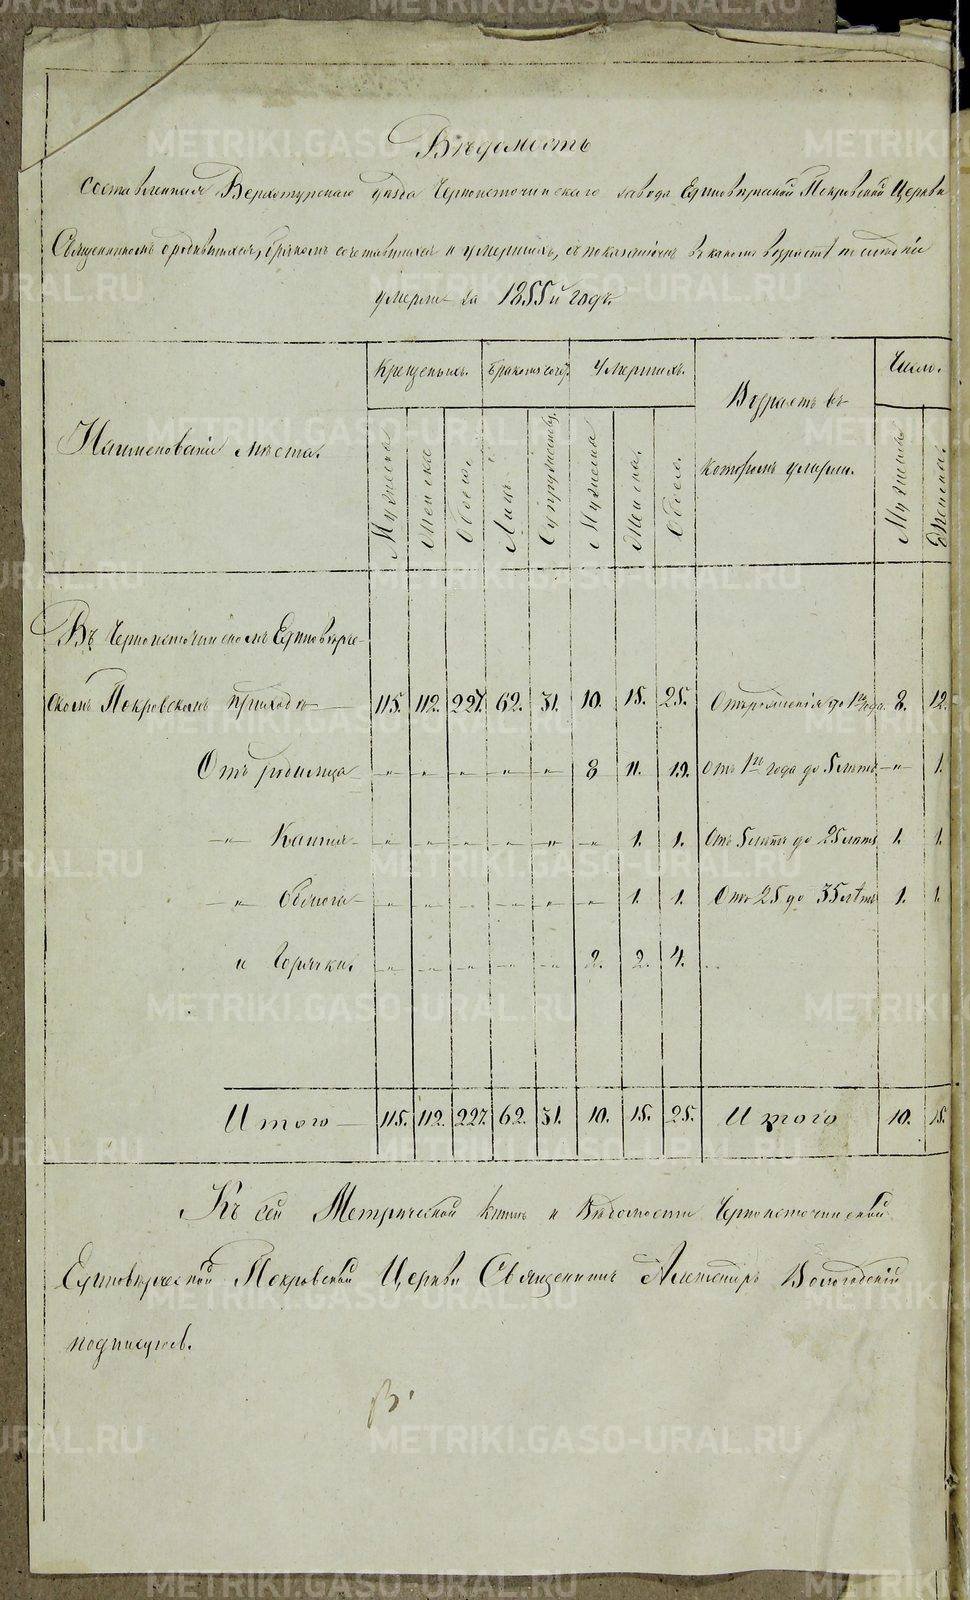 Вѣдомость
составленная Верхотурскаго уѣзда Черноисточинскаго завода Единовѣрческой Покровской Церкви
Священникомъ о родившихся, бракомъ сочетавшихся и умершихъ, съ показаніемъ въ какомъ возрастѣ послѣдніе
умерли за 1855й годъ.
Наименованіе мѣста.
Крещеныхъ.
Мужеска
Женска
Обоего.
Браковъ сочет.
Лицъ.
Супружествъ.
Умершихъ.
Мужеска
Женска.
Обоего.
Возрастъ въ
которомъ умерли.
Число.
Мужеска
Женска.
Въ Черноисточинскомъ Единовѣрче-
скомъ Покровскомъ приходѣ 115. 112. 227. 62. 31. 10. 15. 25. Отъ рожденія до 1го года. 8. 12.
Отъ родимца - " - - " - - " - - " - - " - 8 11. 19. Отъ 1го года до 5 лѣтъ - " - 1.
- " - Кашля - " - - " - - " - - " - - " - - " - 1. 1. Отъ 5 лѣтъ до 25 лѣтъ 1. 1.
- " - - " - - " - - " - - " - - " - - " - 1. 1. Отъ 25 до 35 лѣтъ 1. 1.
и Горячки. - " - - " - - " - - " - - " - 2. 2. 4.
Итого 115. 112. 227. 62. 31. 10. 15. 25. Итого 10. 15.
Къ сей Метрической книгѣ и Вѣдомости Черноисточинской
Единовѣрческой Покровской Церкви Священникъ Вологодскій
подписуюсь.
METRIKI.GASO-URAL.RU